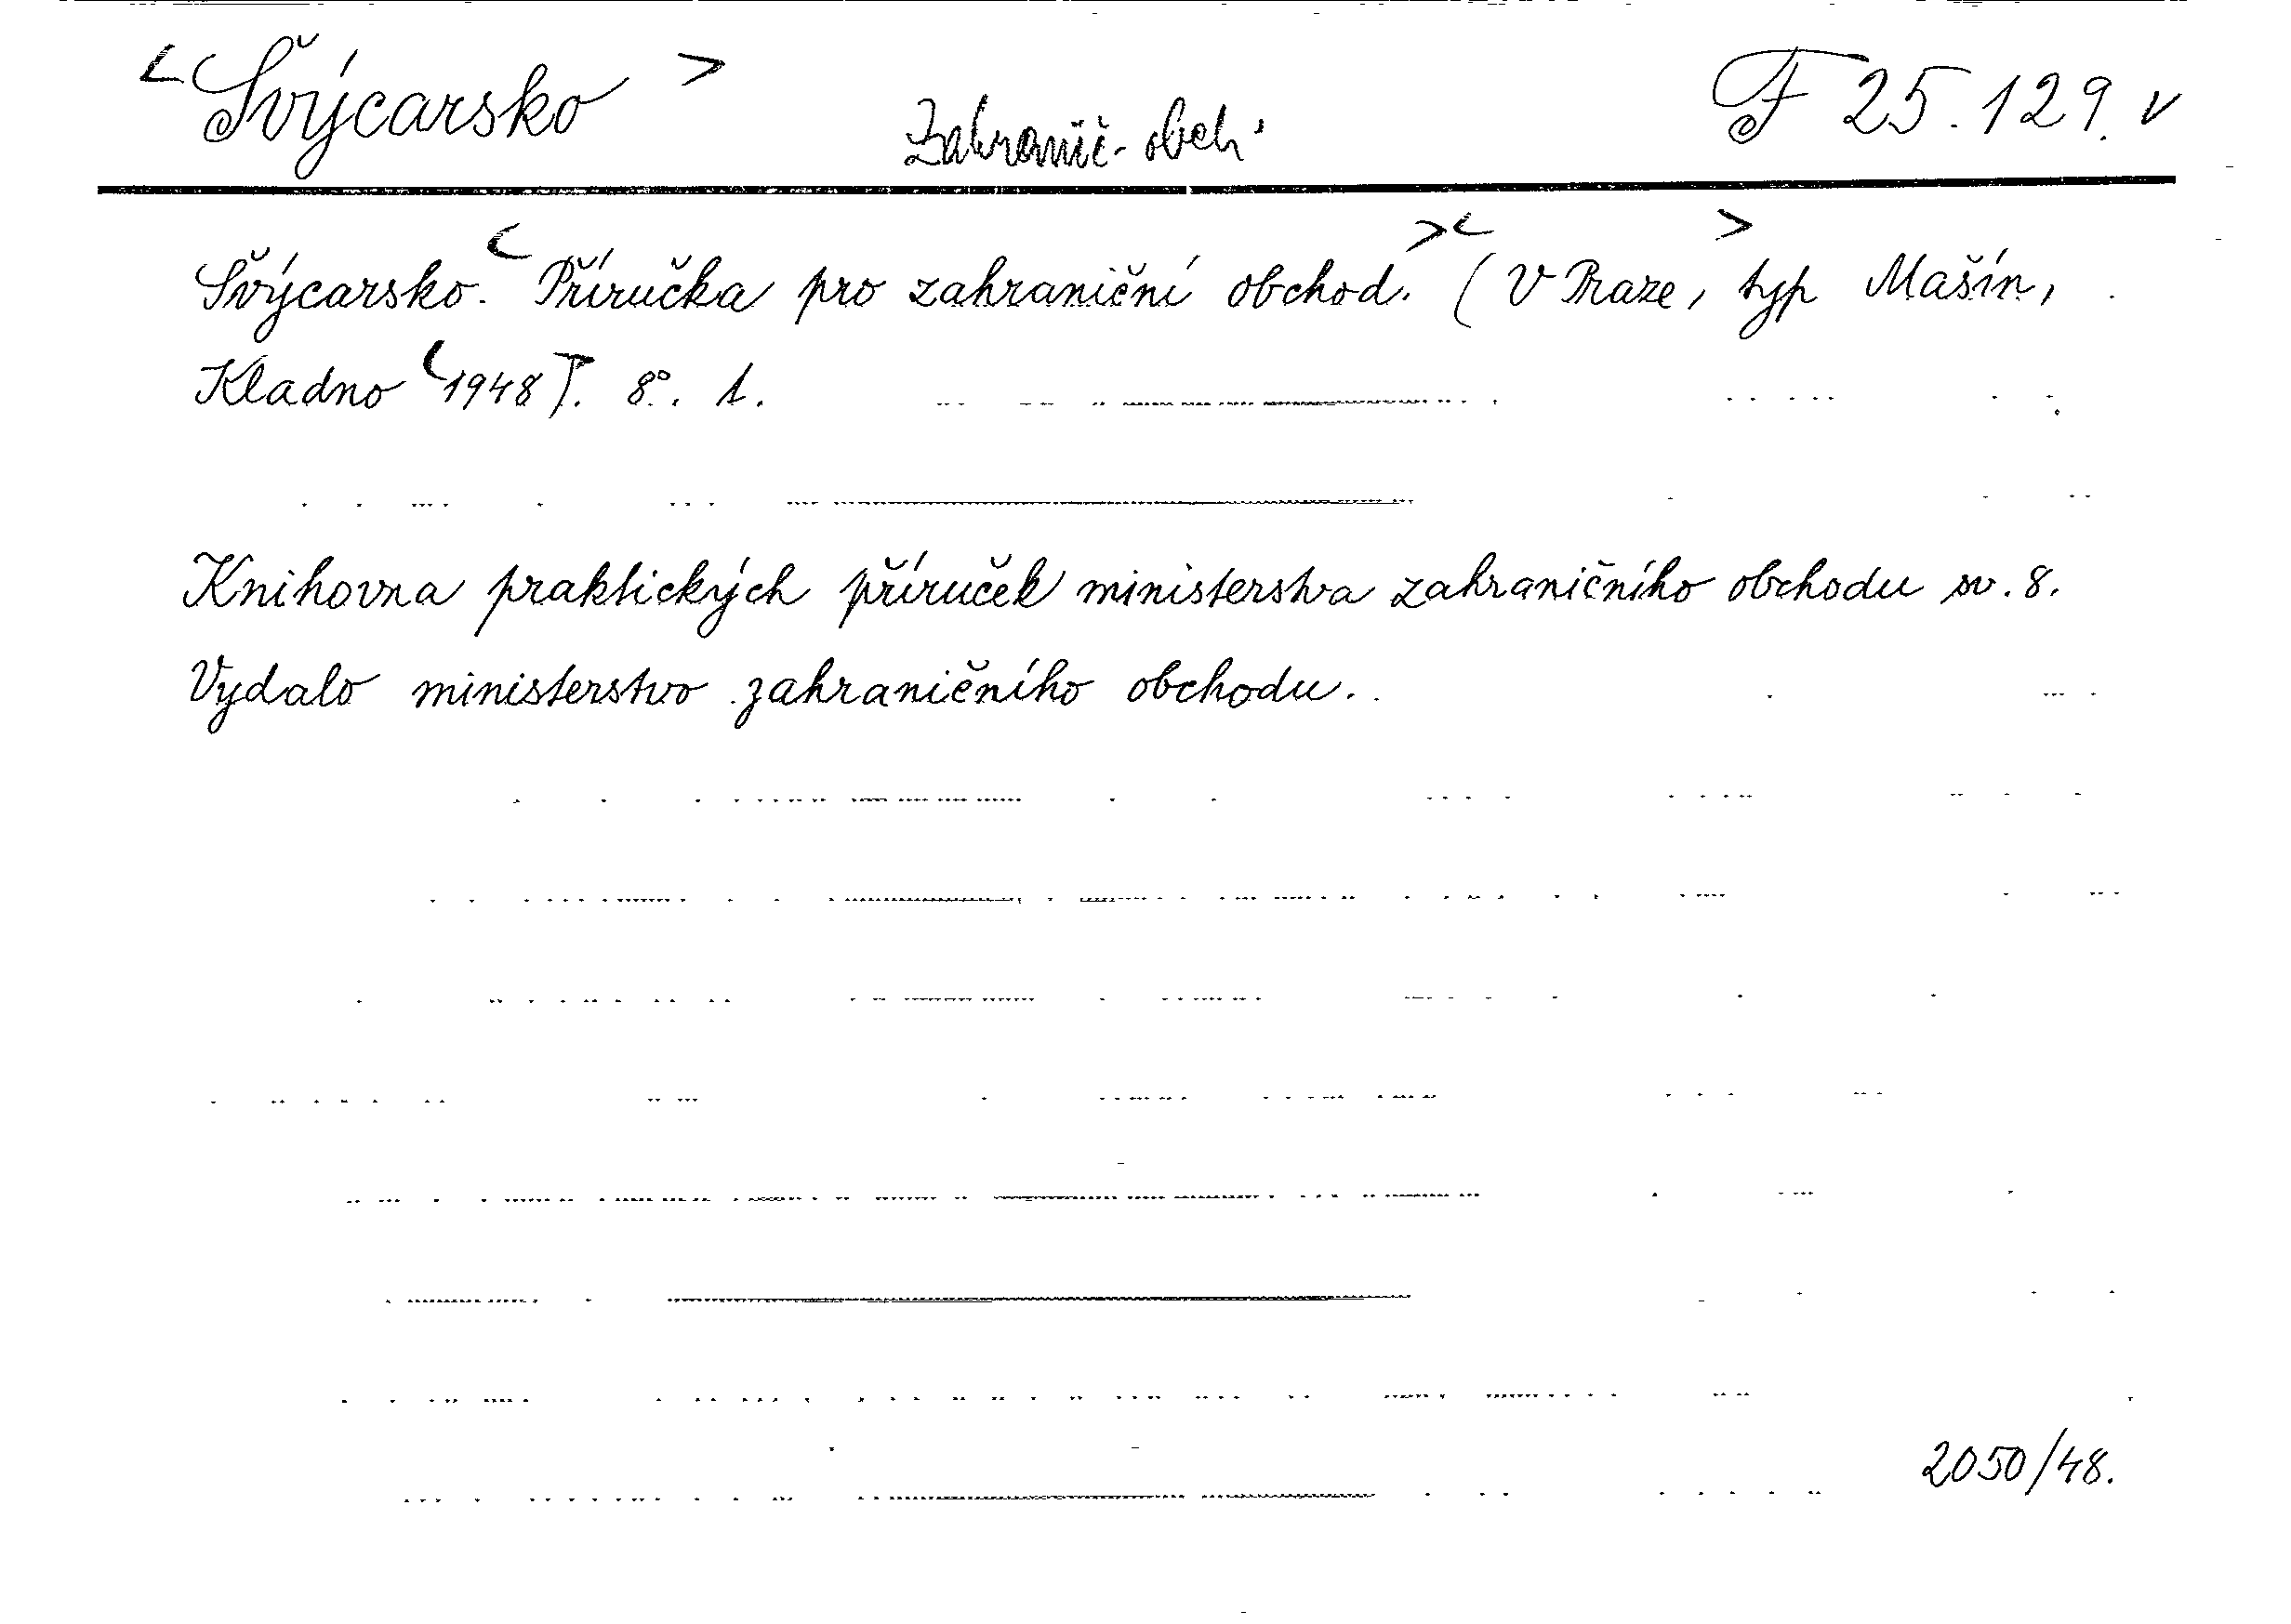 <Švýcarsko> Zahranič. obch. F 25.129. v
Švýcarsko. <Příručka pro zahraniční obchod.> <(V Praze,> typ Mašín,
Kladno <1948>). 8°. 1.
Knihovna praktických příruček ministerstva zahraničního obchodu sv. 8.
Vydalo ministerstvo zahraničního obchodu.
2050/48.